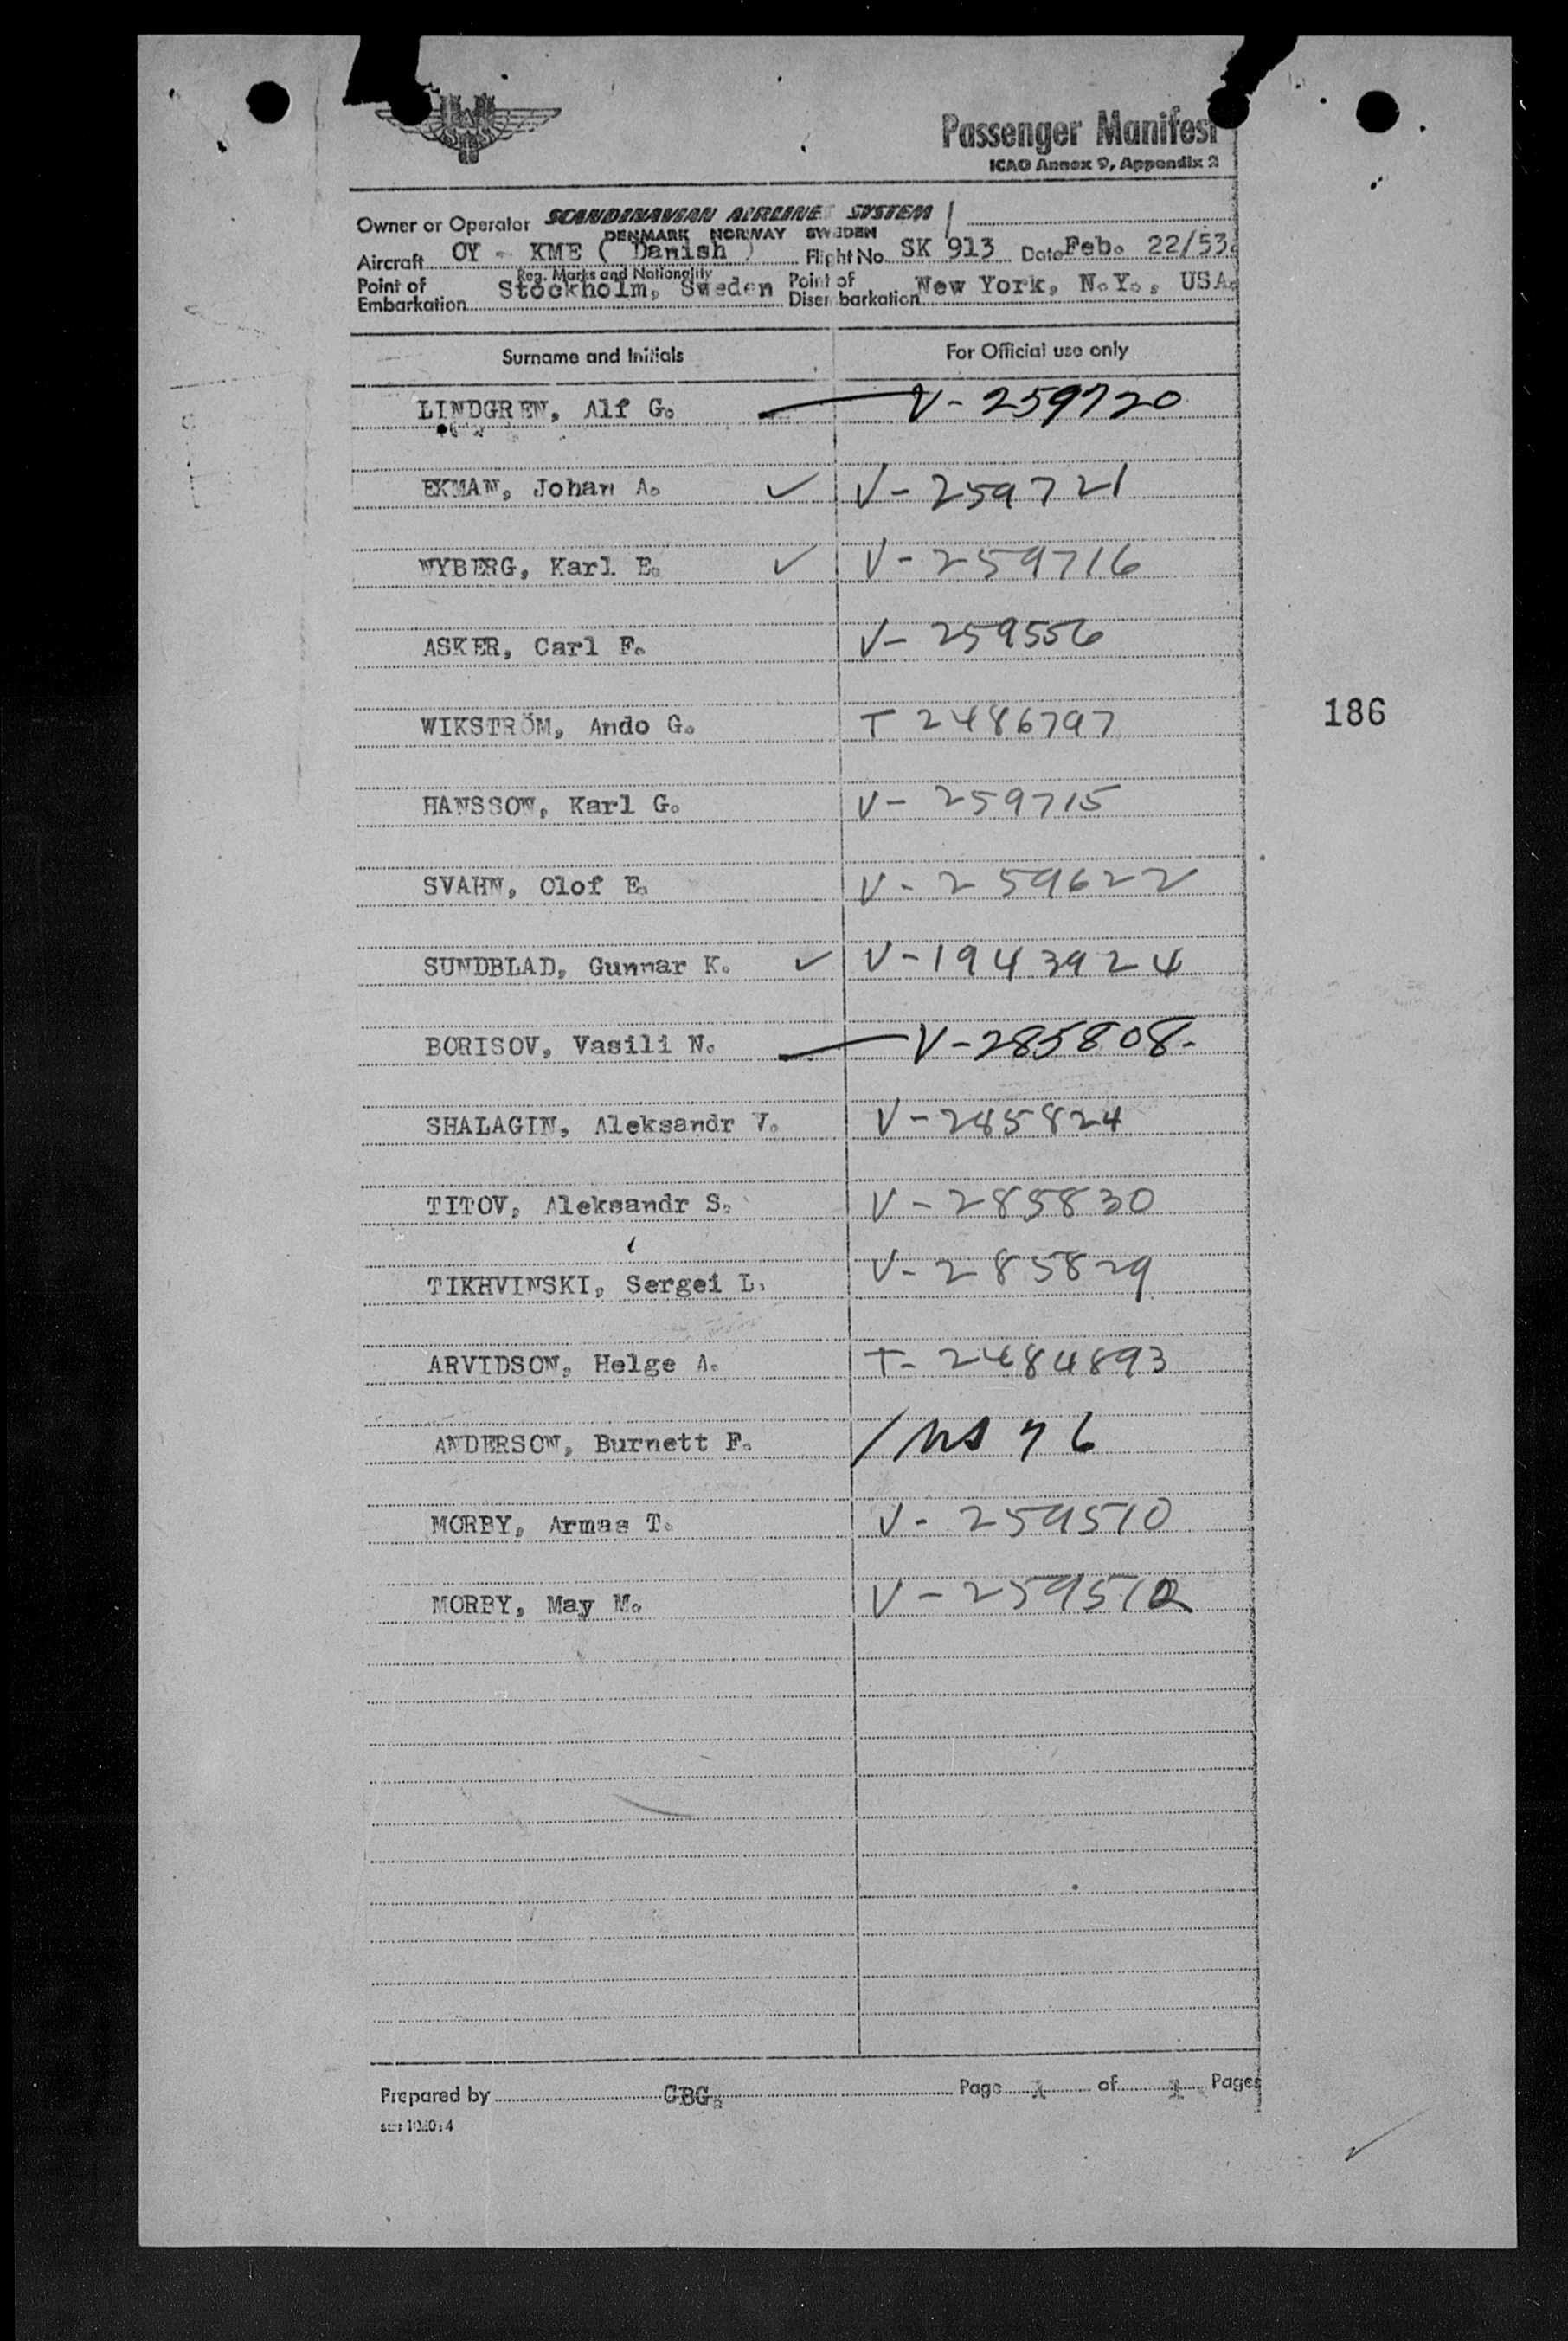 Passenger Manifest
ICAO Annex 9, Appendix 2
Owner or Operator SCANDINAVIAN AIRLINES SYSTEM
DENMARK NORWAY SWEDEN
Aircraft OY - KME ( Danish ) Flight No. SK 913 Date Feb. 22/53.
Reg. Marks and Nationality
Point of Embarkation Stockholm, Sweden Point of Disembarkation New York, N.Y., USA.
Surname and Initials For Official use only
LINDGREN, Alf G. V-259720
EKMAN, Johan A. ✓ V-259721
WYBERG, Karl E. ✓ V-259716
ASKER, Carl F. V-259556
186
WIKSTRÖM, Ando G. T 2486797
HANSSON, Karl G. V-259715
SVAHN, Olof E. V-259622
SUNDBLAD, Gunnar K. ✓ V-1943924
BORISOV, Vasili N. V-285808-
SHALAGIN, Aleksandr V. V-285824
TITOV, Aleksandr S. V-285830
TIKHVINSKI, Sergei L. V-285829
ARVIDSON, Helge A. T-2484893
ANDERSON, Burnett F.
MORBY, Armas T. V-259510
MORBY, May M. V-259512
Prepared by CBG. Page 1 of 1 Pages